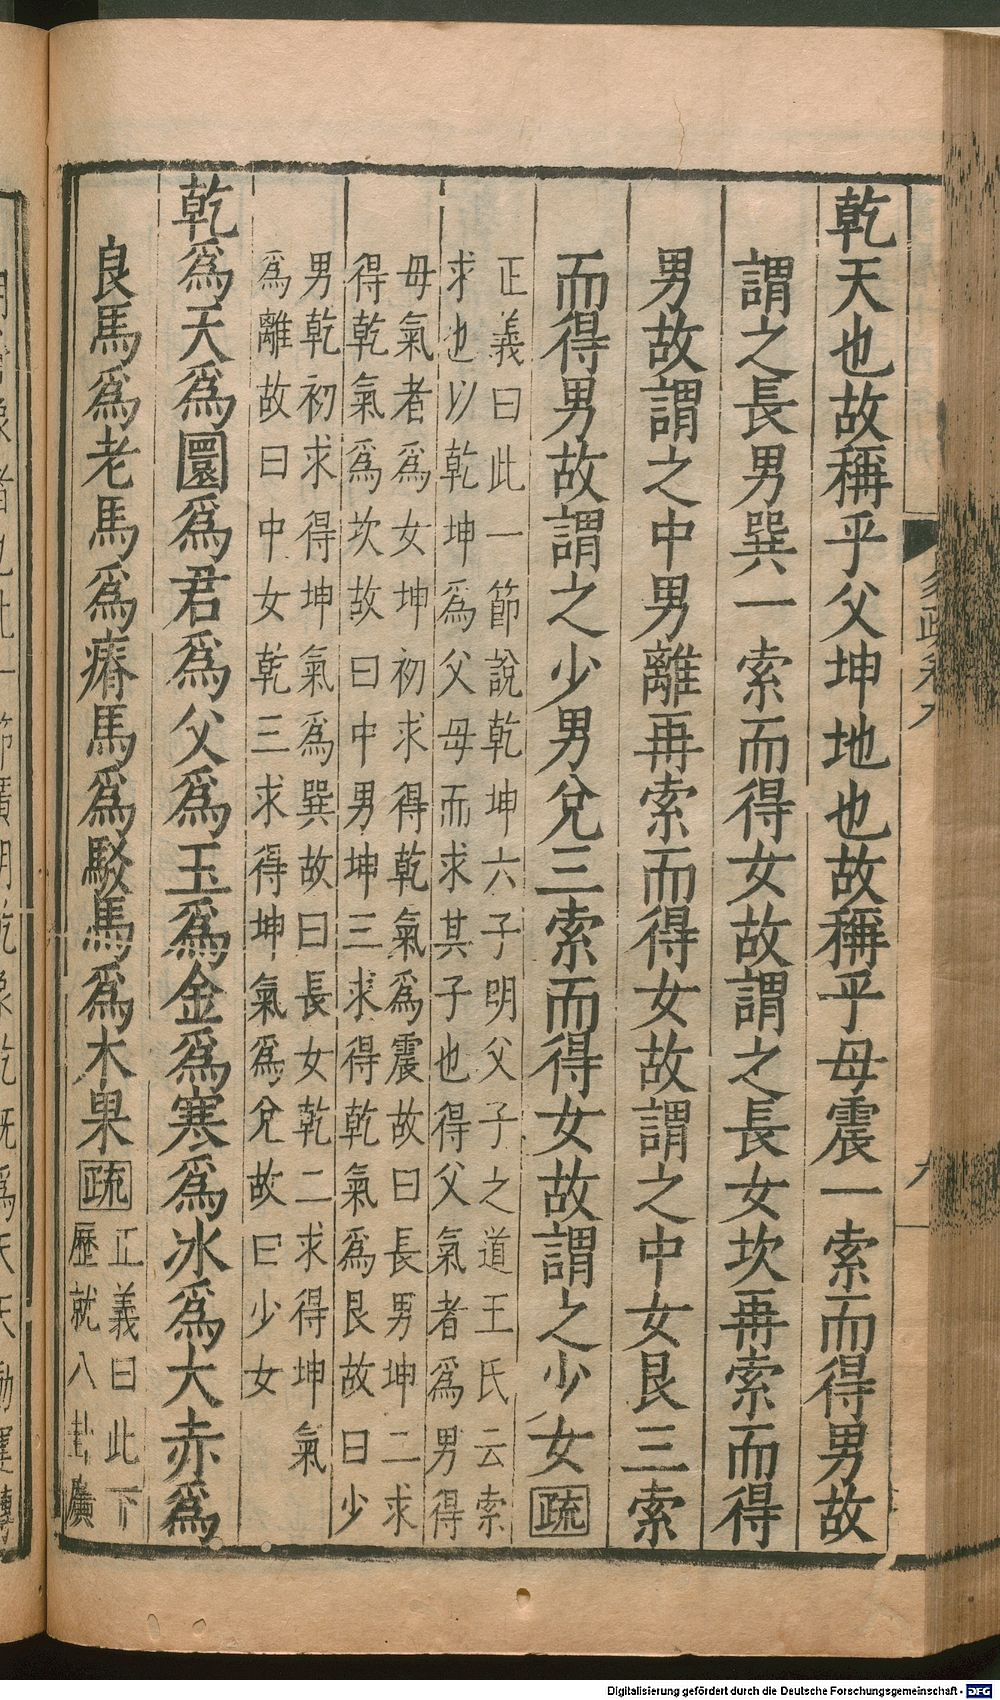 乾天也故稱乎父坤地也故稱乎母震一索而得男故
謂之長男巽一索而得女故謂之長女坎再索而得
男故謂之中男離再索而得女故謂之中女艮三索
而得男故謂之少男兌三索而得女故謂之少女疏
正義曰此一節說乾坤六子明父子之道王氏云索
求也以乾坤為父母而求其子也得父氣者為男得
母氣者為女坤初求得乾氣為震故曰長男坤二求
得乾氣為坎故曰中男坤三求得乾氣為艮故曰少
男乾初求得坤氣為巽故曰長女乾二求得坤氣
為離故曰中女乾三求得坤氣為兌故曰少女
乾爲天爲圜爲君爲父爲玉爲金爲寒爲冰爲大赤爲
良馬爲老馬爲瘠馬爲駁馬爲木果疏
正義曰此下
歷就八卦廣
易疏卷九
九
Digitalisierung gefördert durch die Deutsche Forschungsgemeinschaft - DFG